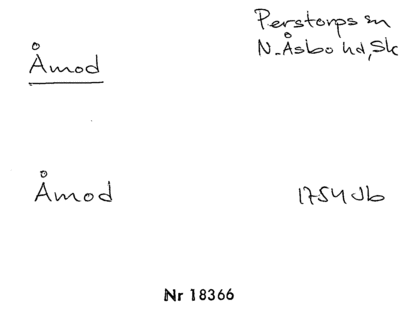 Perstorps sn
Åmod
N. Åsbo hd, Sk
Åmod
1754 Jb
Nr 18366